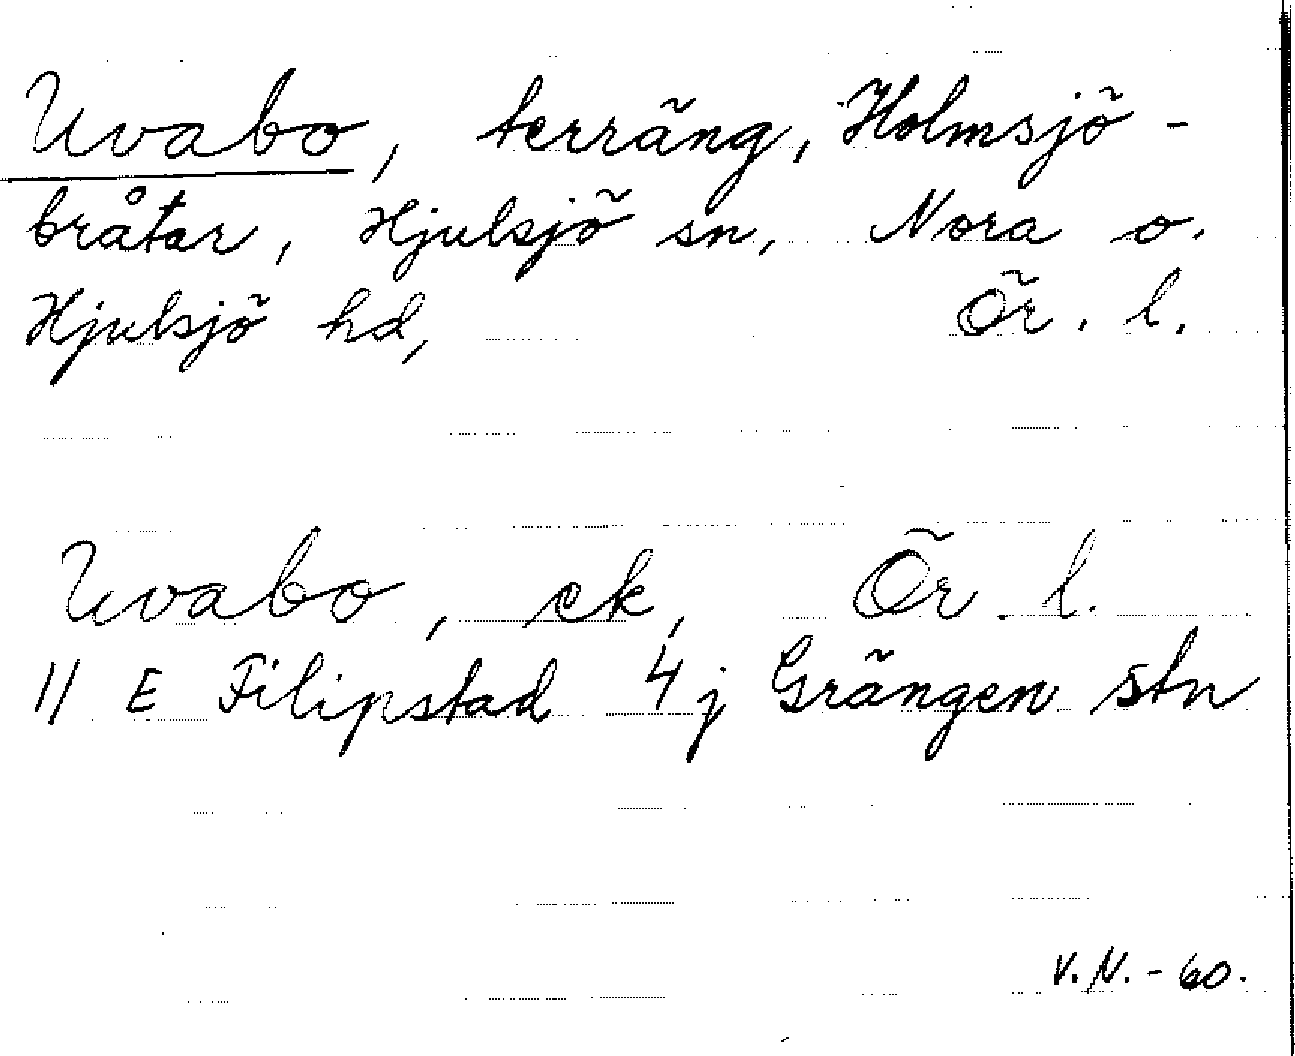 Uvabo, terräng, Holmsjö-
bråtar, Hjulsjö sn, Nora o.
Hjulsjö hd, Ör. l.
Uvabo, ek, Ör. l.
11 E Filipstad 4 j Grängen stn
V.N. - 60.